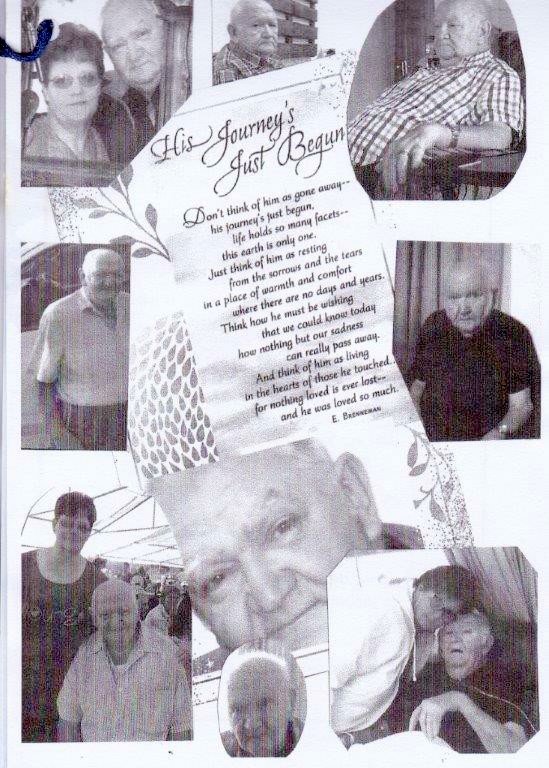 His Journey's
Just Begun
Don't think of him as gone away--
his journey's just begun,
life holds so many facets--
this earth is only one.
Just think of him as resting
from the sorrows and the tears
in a place of warmth and comfort
where there are no days and years.
Think how he must be wishing
that we could know today
how nothing but our sadness
can really pass away.
And think of him as living
in the hearts of those he touched...
for nothing loved is ever lost--
and he was loved so much.
E. Brenneman